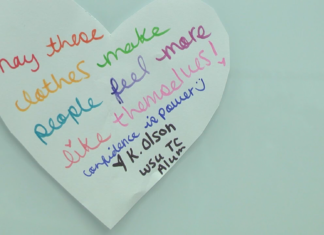 may these
clothes make
people feel more
like themselves!
confidence is power :)
♥ K. Olson
WSU TC
Alum